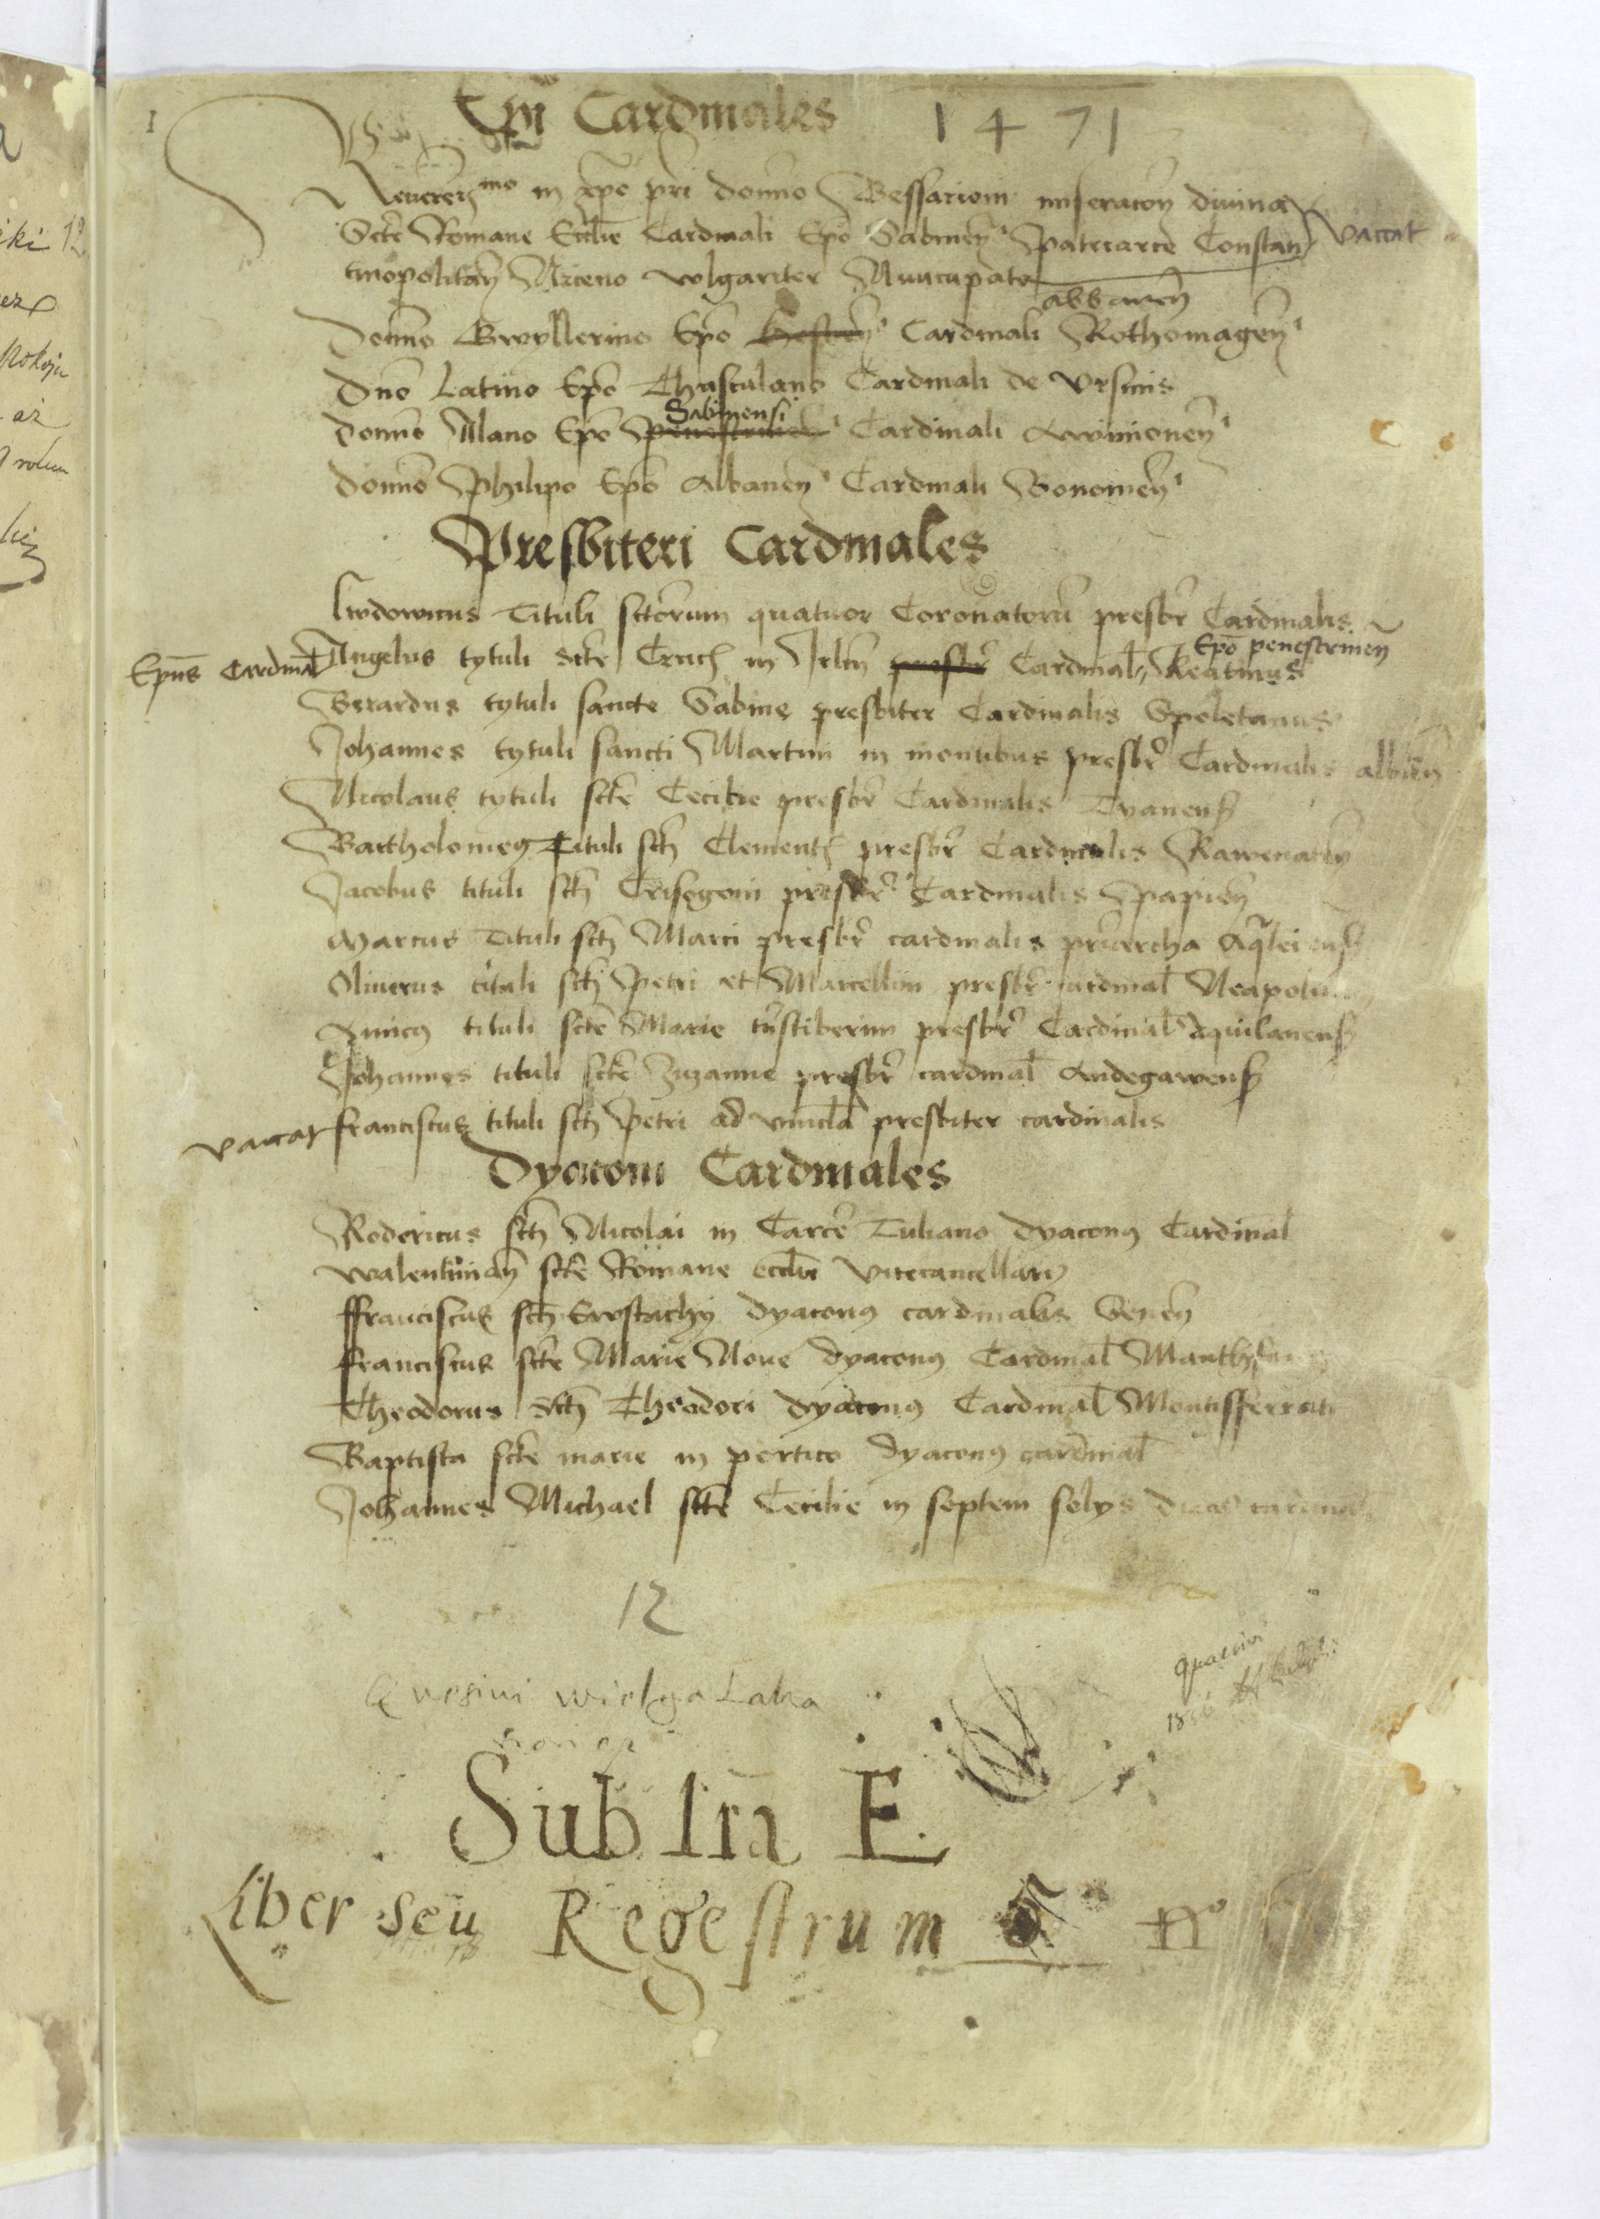 1
Epī Cardinales 1471
Reverendmo in xpo pri domno Bessarioni miseracon divina
Scte Romane Ecclie Cardinali Epo Sabinen Patriarce Constan vaccat
tinopolitan Niceno wlgariter Nuncupato
abbanen
Domno Gwyllerino Epo Cardinali Rothomagen
Dno Latino Epo Thusculano Cardinali de Ursinis
Sabinensi
Domno Alano Epo Penestrinen Cardinali Avinionen
Domno Philipo Epo Albanen Cardinali Bononien
Presbiteri Cardinales
Lwdowicus Tituli sctorum quatuor Coronatoru presbr Cardinalis
Epo penestrinen
Epus Cardinal Angelus tytuli scte Cruc in Jrlm presbr Cardinal Reatinus
Berardus tytuli sancte Sabine presbiter Cardinalis Spoletanus
Johannes tytuli sancti Martini in montibus presbr Cardinalis albien
Nicolaus tytuli scte Cecilie presbr Cardinalis Tyanens
Bartholomeus Tituli sch Clement presbr Cardinalis Rawenaten
Jacobus tituli sch Crisogoni presbr Cardinalis Papien
Marcus Tituli sch Marci presbr cardinalis priarcha Aqleiens
Oliverus tituli sch Petri et Marcellini presbr cardinal Neapolit
tituli scte Marie tnstiberim presbr Cardinal Aquilanens
Johannes tituli scte Zuzanne presbr cardinal Andegawens
vaccat franciscus tituli sch Petri ad vincla presbiter cardinalis
Dyaconi Cardinales
Rodericus sch Nicolai in Carcere Tuliano dyaconus Cardinal
walentinan scte Romane ecclie vicecancellari
ffranciscus sch Ewstachy dyaconus cardinalis Senen
ffranciscus scte Marie Nove dyaconus Cardinal Manth
Theodorus sch Theodori dyaconus Cardinal Montisfferrati
Baptista scte marie in portico dyaconus cardinal
Johannes Michael scte Cecilie in septem solys cardinal
12
Quesivi wielgalaka
quaesivi
Sub lra E
Liber seu Regestrum 5 nº